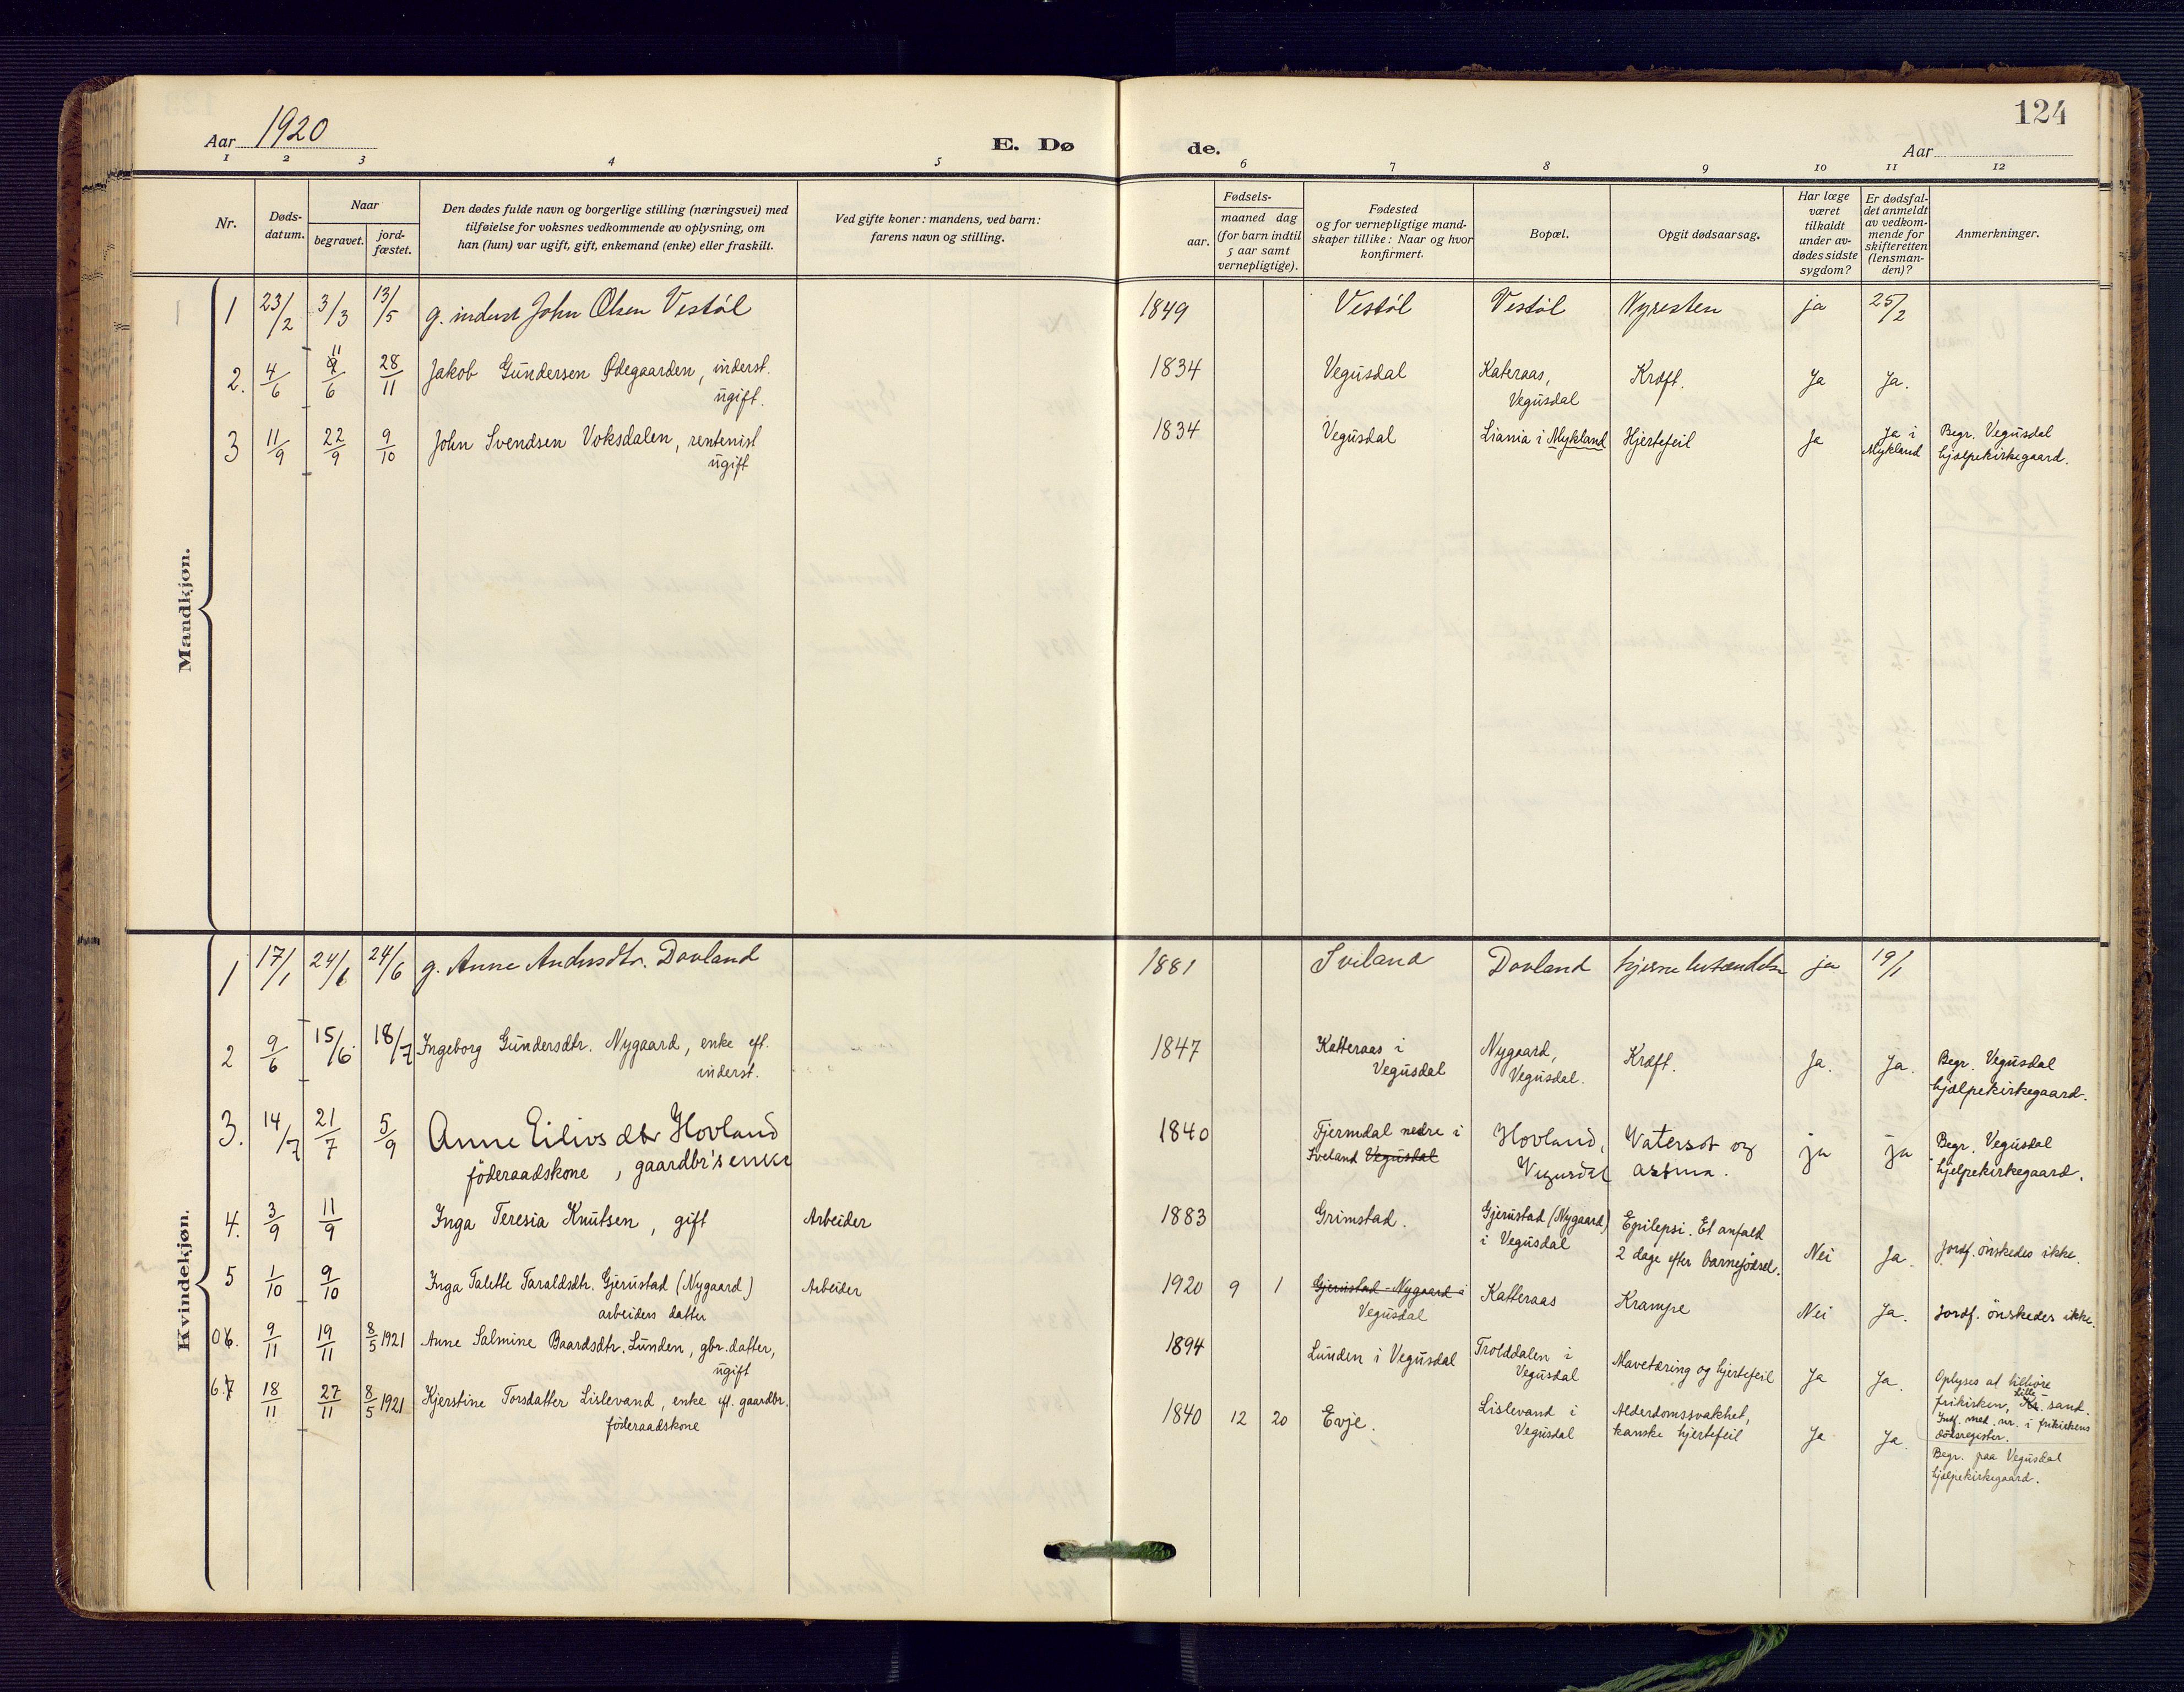 124
Aar 1920
E. Dø
de.
Aar
1 2 3 4 5 6 7 8 9 10 11 12
Nr.
Døds-
datum.
Naar
begravet.
jord-
fæstet.
Den dødes fulde navn og borgerlige stilling (næringsvei) med
tilføielse for voksnes vedkommende av oplysning, om
han (hun) var ugift, gift, enkemand (enke) eller fraskilt.
Ved gifte koner: mandens, ved barn:
farens navn og stilling.
Fødsels-
aar.
maaned dag
(for barn indtil
5 aar samt
vernepligtige).
Fødested
og for vernepligtige mand-
skaper tillike: Naar og hvor
konfirmert.
Bopæl.
Opgit dødsaarsag.
Har læge
været
tilkaldt
under av-
dødes sidste
sygdom?
Er dødsfal-
det anmeldt
av vedkom-
mende for
skifteretten
(lensman-
den)?
Anmerkninger.
Mandkjøn.
1 23/2 3/3 13/5 g. inderst John Olsen Vestøl 1849 Vestøl Vestøl Nyresten ja 25/2
2. 4/6 11/6 28/11 Jakob Gundersen Ødegaarden, inderst. 1834 Vegusdal Kateraas, Kræft. Ja Ja.
ugift. Vegusdal
3 11/9 22/9 9/10 John Svendsen Voksdalen, rentenist 1834 Vegusdal Liania i Mykland Hjertefeil Ja Ja i Begr. Vegusdal
ugift Mykland hjælpekirkegaard.
Kvindekjøn.
1 17/1 24/1 24/6 g. Anne Andersdtr. Dovland 1881 Sveland Dovland hjerne betændelse ja 19/1
2 9/6 15/6 18/7 Ingeborg Gundersdtr. Nygaard, enke eft. 1847 Katteraas i Nygaard, Kræft. Ja. Ja. Begr. Vegusdal
inderst. Vegusdal Vegusdal. hjælpekirkegaard.
3. 14/7 21/7 5/9 Anne Eilivs dtr Hovland 1840 Tjermdal nedre i Hovland, Vatersot og ja ja Begr. Vegusdal
föderaadskone, gaardbr's enke Sveland Vegusdal Vegusdal astma. hjelpekirkegaard.
4. 3/9 11/9 Inga Teresia Knutsen, gift Arbeider 1883 Grimstad. Gjerustad (Nygaard) Epilepsi. Et anfald Nei Ja. Jordf. ønskedes ikke.
i Vegusdal 2 dage efter barnefødsel.
5 1/10 9/10 Inga Talette Taraldsdtr. Gjerustad (Nygaard) Arbeider 1920 9 1 Gjerustad - Nygaard i Katteraas Krampe Nei Ja. Jordf. önskedes ikke.
arbeiders datter Vegusdal
06. 9/11 19/11 8/5 1921 Anne Salmine Baardsdtr. Lunden, gbr. datter, 1894 Lunden i Vegusdal Trolddalen i Mavetæring og hjertefeil Ja Ja. Oplyses at tilhøre
ugift Vegusdal frikirken, Lille-sand.
Indf. med nr. i frikirkens
dødsregister.
6.7 18/11 27/11 8/5 1921 Kjerstine Torsdatter Lislevand, enke eft. gaardbr. 1840 12 20 Evje. Lislevand i Alderdomssvakhet, Ja Ja. Begr. paa Vegusdal
föderaadskone Vegusdal kanske hjertefeil hjælpekirkegaard.